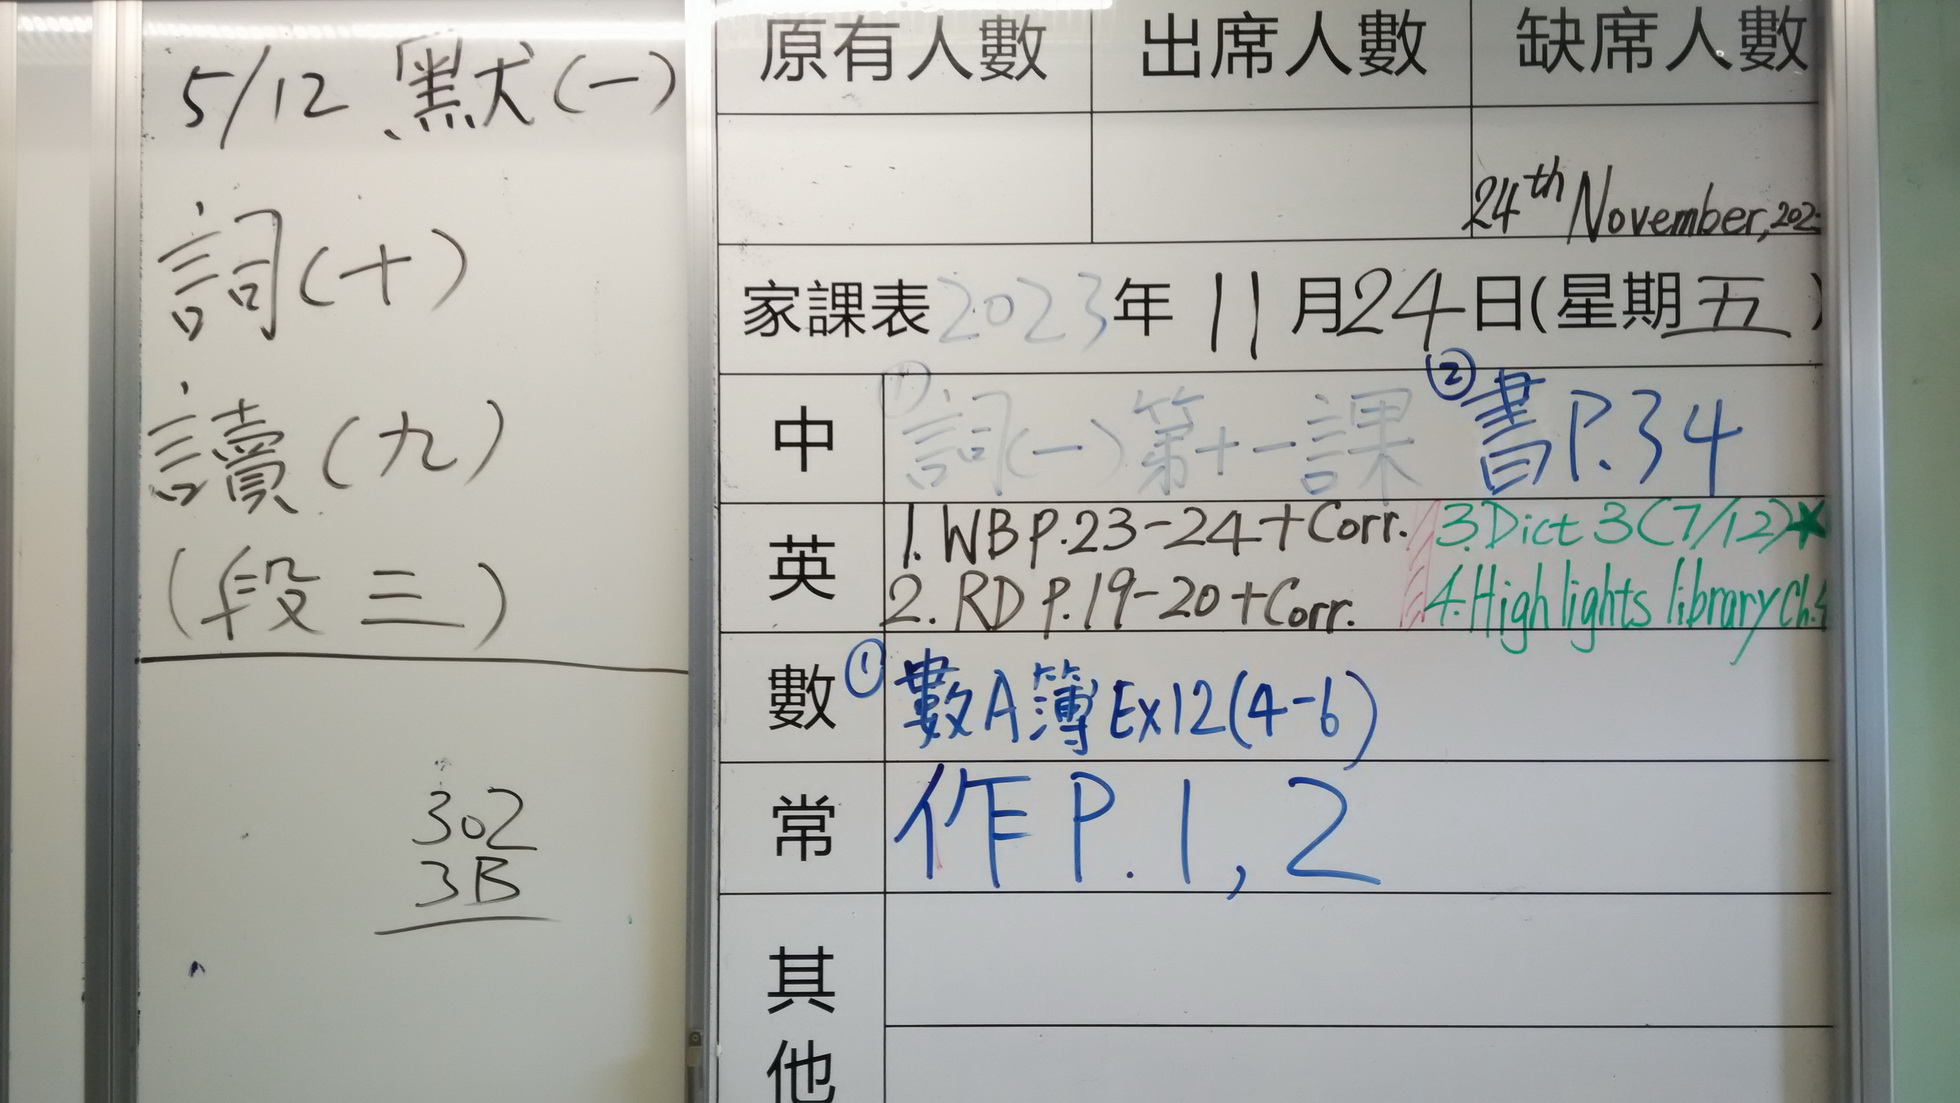 5/12 默(一)
詞(十)
讀(九)
(段三)
302
3B
原有人數 出席人數 缺席人數
24th November, 202
家課表 2023年 11月24日(星期五)
中 ① 詞(一)第十一課 ② 書P.34
英 1. WB P.23-24+Corr. 3. Dict 3 (7/12)★
2. RD P.19-20+Corr. 4. Highlights library Ch.
數 ① 數A簿 Ex12(4-6)
常 作P.1,2
其他